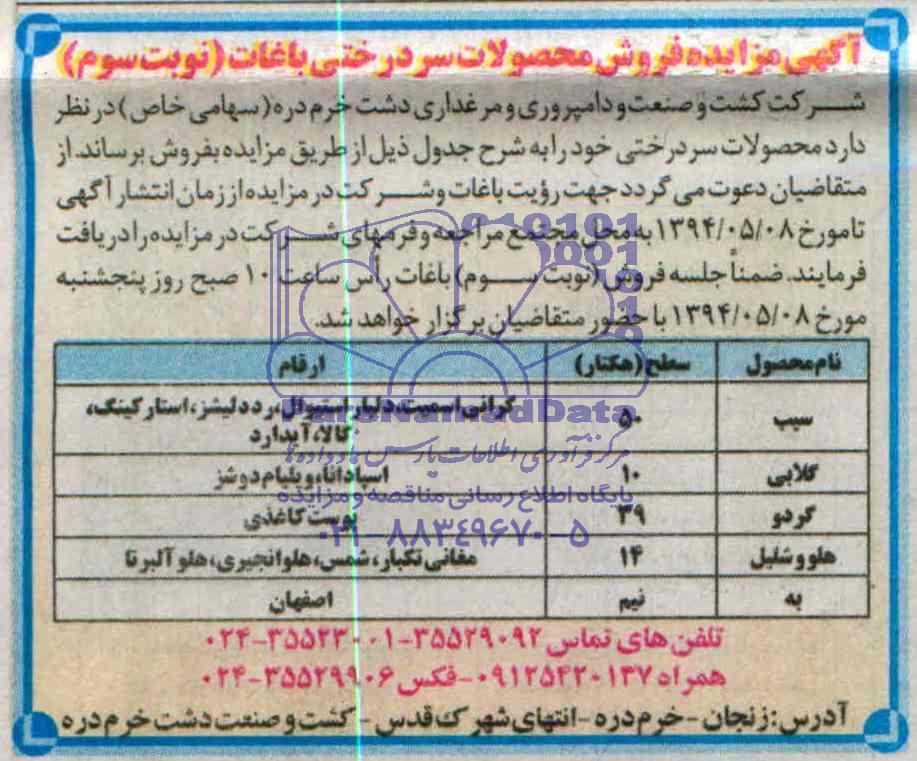 آگهی مزایده فروش محصولات سردرختی باغات (نوبت سوم)
شرکت کشت و صنعت و دامپروری و مرغداری دشت خرم دره (سهامی خاص) در نظر
دارد محصولات سردرختی خود را به شرح جدول ذیل از طریق مزایده بفروش برساند. از
متقاضیان دعوت می گردد جهت رؤیت باغات و شرکت در مزایده از زمان انتشار آگهی
تا مورخ ۱۳۹۴/۰۵/۰۸ به محل مجتمع مراجعه و فرمهای شرکت در مزایده را دریافت
فرمایند. ضمناً جلسه فروش (نوبت سوم) باغات رأس ساعت ۱۰ صبح روز پنجشنبه
مورخ ۱۳۹۴/۰۵/۰۸ با حضور متقاضیان برگزار خواهد شد.
نام محصول سطح (هکتار) ارقام
سیب ۵۰ گرانی اسمیت، دلبار استیوال، رد دلیشز، استارکینگ،
گالا، آیدارد
گلابی ۱۰ اسپادانا، ویلیام دوشز
گردو ۳۹ پوست کاغذی
هلو و شلیل ۱۴ مغانی تکبار، شمس، هلو انجیری، هلو آلبرتا
به نیم اصفهان
تلفن های تماس ۳۵۵۲۹۰۹۲-۳۵۵۲۳۰۰۱-۰۲۴
همراه ۰۹۱۲۵۴۲۰۱۳۷-فکس ۳۵۵۲۹۹۰۶-۰۲۴
آدرس: زنجان - خرم دره - انتهای شهرک قدس - کشت و صنعت دشت خرم دره
ParsNamadData
مرکز فرآوری اطلاعات پارس نماد داده ها
پایگاه اطلاع رسانی مناقصه و مزایده
۰۲۱-۸۸۳۴۹۶۷۰-۵